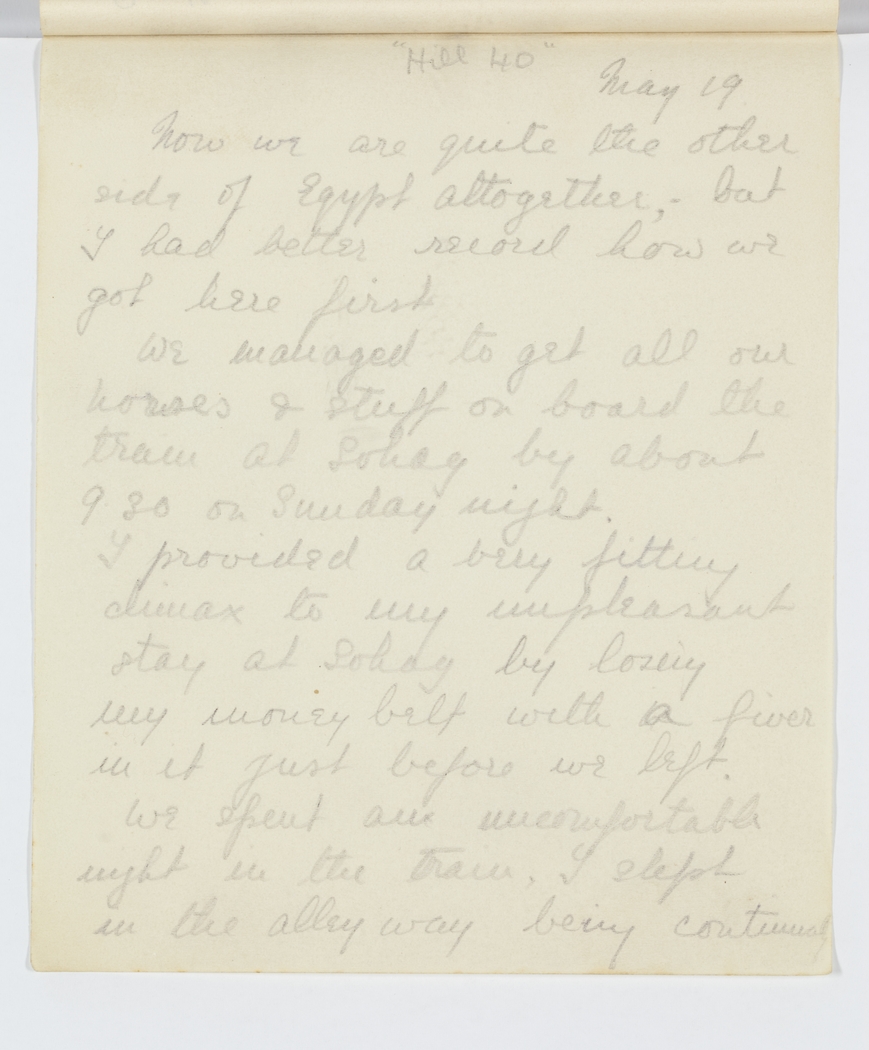 "Hill 40"
May 19
Now we are quite the other
side of Egypt altogether, - but
I had better record how we
got here first
We managed to get all our
horses & stuff on board the
train at Sohag by about
9 30 on Sunday night.
I provided a very fitting
climax to my unpleasant
stay at Sohag by losing
my money belt with a fiver
in it just before we left.
We spent an uncomfortable
night in the train. I slept
in the alley way being continual